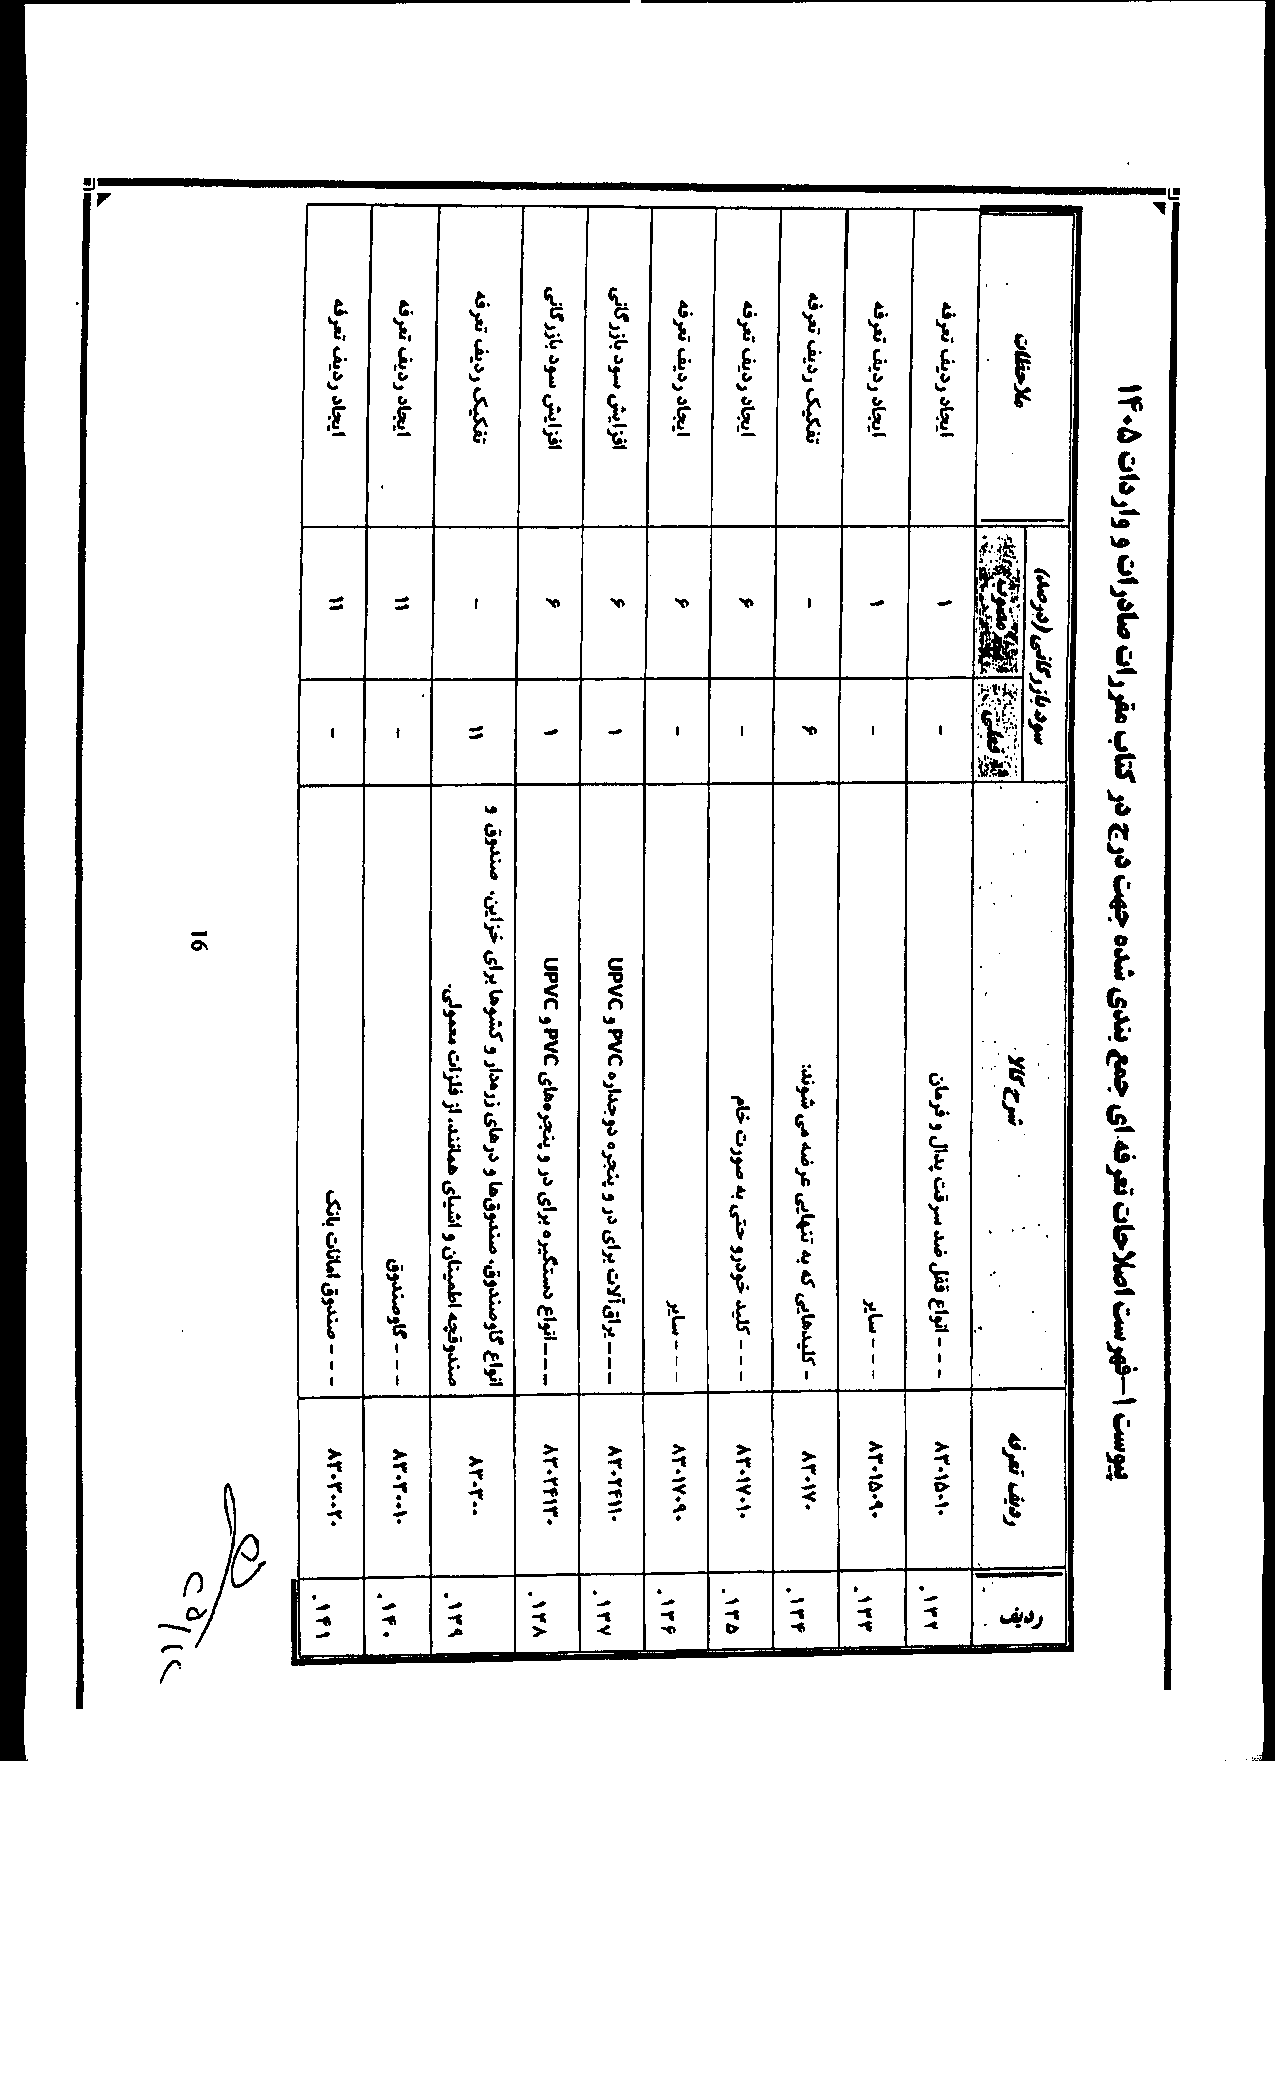 پیوست ۱-فهرست اصلاحات تعرفه ای جمع بندی شده جهت درج در کتاب مقررات صادرات و واردات ۱۴۰۵
ردیف ردیف تعرفه شرح کالا سود بازرگانی (درصد) ملاحظات
فعلی مصوبه
۱۳۲. ۸۳۰۱۵۰۱۰ - - - انواع قفل ضد سرقت پدال و فرمان - ۱ ایجاد ردیف تعرفه
۱۳۳. ۸۳۰۱۵۰۹۰ - - - سایر - ۱ ایجاد ردیف تعرفه
۱۳۴. ۸۳۰۱۷۰ - کلیدهایی که به تنهایی عرضه می شوند: ۶ - تفکیک ردیف تعرفه
۱۳۵. ۸۳۰۱۷۰۱۰ - - - کلید خودرو حتی به صورت خام - ۶ ایجاد ردیف تعرفه
۱۳۶. ۸۳۰۱۷۰۹۰ - - - سایر - ۶ ایجاد ردیف تعرفه
۱۳۷. ۸۳۰۲۴۱۱۰ - - - - یراق‌آلات برای در و پنجره دوجداره PVC و UPVC ۱ ۶ افزایش سود بازرگانی
۱۳۸. ۸۳۰۲۴۱۳۰ - - - - انواع دستگیره برای در و پنجره‌های PVC و UPVC ۱ ۶ افزایش سود بازرگانی
۱۳۹. ۸۳۰۳۰۰ انواع گاوصندوق، صندوق‌ها و درهای زره‌دار و کشوها برای خزاین، صندوق و
صندوقچه اطمینان و اشیای همانند، از فلزات معمولی. ۱۱ - تفکیک ردیف تعرفه
۱۴۰. ۸۳۰۳۰۰۱۰ - - - گاوصندوق - ۱۱ ایجاد ردیف تعرفه
۱۴۱. ۸۳۰۳۰۰۲۰ - - - صندوق امانات بانک - ۱۱ ایجاد ردیف تعرفه
16